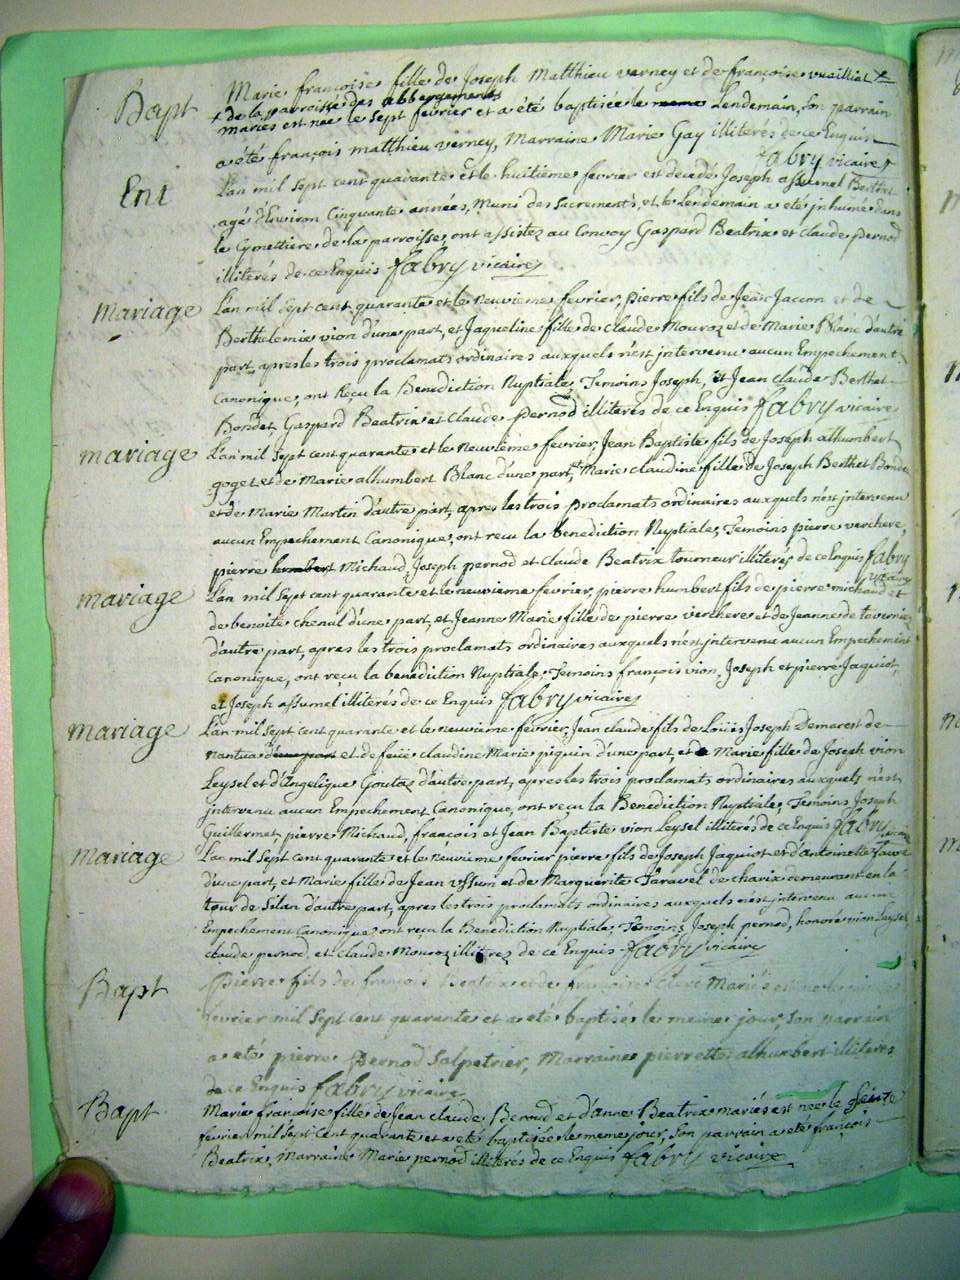 Bapt Marie françoise fille de Joseph Matthieu verney et de françoise vuailliat +
+ de la parroisse des abbergements
mariés est née le sept fevrier et a été baptisée le lendemain, son parrain
a été françois matthieu verney, Marraine Marie Gay illiterés de ce Enquis
fabry vicaire
Ent L'an mil sept cent quarante et le huitième fevrier est decedé Joseph assumel Berthet
agé d'Environ Cinquante années, Muni des sacrements, et le lendemain a eté inhumé dans
le Cymettiere de la parroisse, ont assistez au Convoy Gaspard Beatrix et Claude pernod
illiterés de ce Enquis fabry vicaire
Mariage L'an mil sept cent quarante et le neuvieme fevrier, pierre fils de Jean Jacom et de
Berthelemie vion d'une part, et Jaqueline fille de Claude Mouroz et de Marie Blanc d'autre
part, apres les trois proclamats ordinaires auxquels n'est intervenu aucun Empechement
Canonique, ont Reçu la Benediction Nuptiale, Temoins Joseph, et Jean Claude Berthet
Bondet, Gaspard Beatrix et Claude pernod illiterés de ce Enquis fabry vicaire
Mariage L'an mil sept cent quarante et le Neuvième fevrier, Jean Baptiste fils de Joseph alhumbert
goget et de Marie alhumbert Blanc d'une part, et Marie claudine fille de Joseph Berthet Bondet
et de Marie Martin d'autre part, apres les trois proclamats ordinaires auxquels n'est intervenu
aucun Empechement Canonique, ont reçu la benediction Nuptiale, Temoins pierre verchere,
pierre humbert Michaud, Joseph pernod et Claude Beatrix tourneur illiterés de ce Enquis fabry
vicaire
Mariage L'an mil sept cent quarante et le neuvieme fevrier, pierre humbert fils de pierre michaud et
de benoite chenal d'une part, et Jeanne Marie fille de pierre verchere et de Jeanne de tavernie
d'autre part, apres les trois proclamats ordinaires auxquels n'est intervenu aucun Empechement
Canonique, ont reçu la benediction Nuptiale, Temoins françois vion, Joseph et pierre Jaquiot,
et Joseph assumel illiterés de ce Enquis fabry vicaire
Mariage L'an mil sept cent quarante et le neuvieme fevrier, Jean claude fils de Loüis Joseph Demarest de
nantua et de feüe claudine Marie piquin d'une part, et Marie fille de Joseph vion
Leysel et d'Angelique Goutaz d'autre part, apres les trois proclamats ordinaires auxquels n'est
intervenu aucun Empechement Canonique, ont reçu la Benediction Nuptiale, Temoins Joseph
Guillermet, pierre Michaud, françois et Jean Baptiste vion Leysel illiterés de ce Enquis fabry vicaire
Mariage L'an mil sept cent quarante et le neuvieme fevrier pierre fils de Joseph Jaquiot et d'antoinette favre
d'une part, et Marie fille de Jean ussum et de Marguerite Taravel de charix demeurant en la
tour de Silan d'autre part, apres les trois proclamats ordinaires auxquels n'est intervenu aucun
Empechement Canonique ont recu la Benediction Nuptiale, Temoins Joseph pernod, honoré vion Leysel,
claude pernod, et Claude Mouroz illiterés de ce Enquis fabry vicaire
Bapt pierre fils de françois Beatrix et de françoise Mariés est né le
fevrier mil sept cent quarante et a été baptisé le meme jour, son parrain
a eté pierre Pernod Salpetrier, Marraine pierrette alhumbert illiterés
de ce Enquis fabry vicaire
Bapt Marie françoise fille de Jean claude Bernod et d'anne Beatrix mariés est née le seize
fevrier mil sept cent quarante et a eté baptisée le meme jour, son parrain a eté françois
Beatrix, Marraine Marie pernod illiterés de ce Enquis fabry vicaire